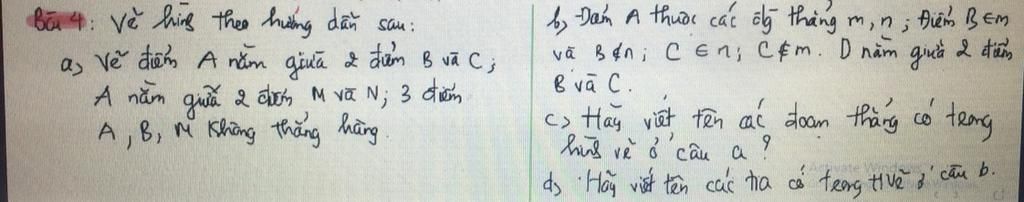 Bài 4: Vẽ hình theo hướng dẫn sau:
a, Vẽ điểm A nằm giữa 2 điểm B và C;
A nằm giữa 2 điểm M và N; 3 điểm
A, B, M không thẳng hàng.
b, Điểm A thuộc các đg thẳng m, n; Điểm B ∈ m
và B ∉ n; C ∈ n; C ∉ m. D nằm giữa 2 điểm
B và C.
c, Hãy viết tên các đoạn thẳng có trong
hình vẽ ở câu a?
d, Hãy viết tên các tia có trong HVẽ ở câu b.
Activate Windows